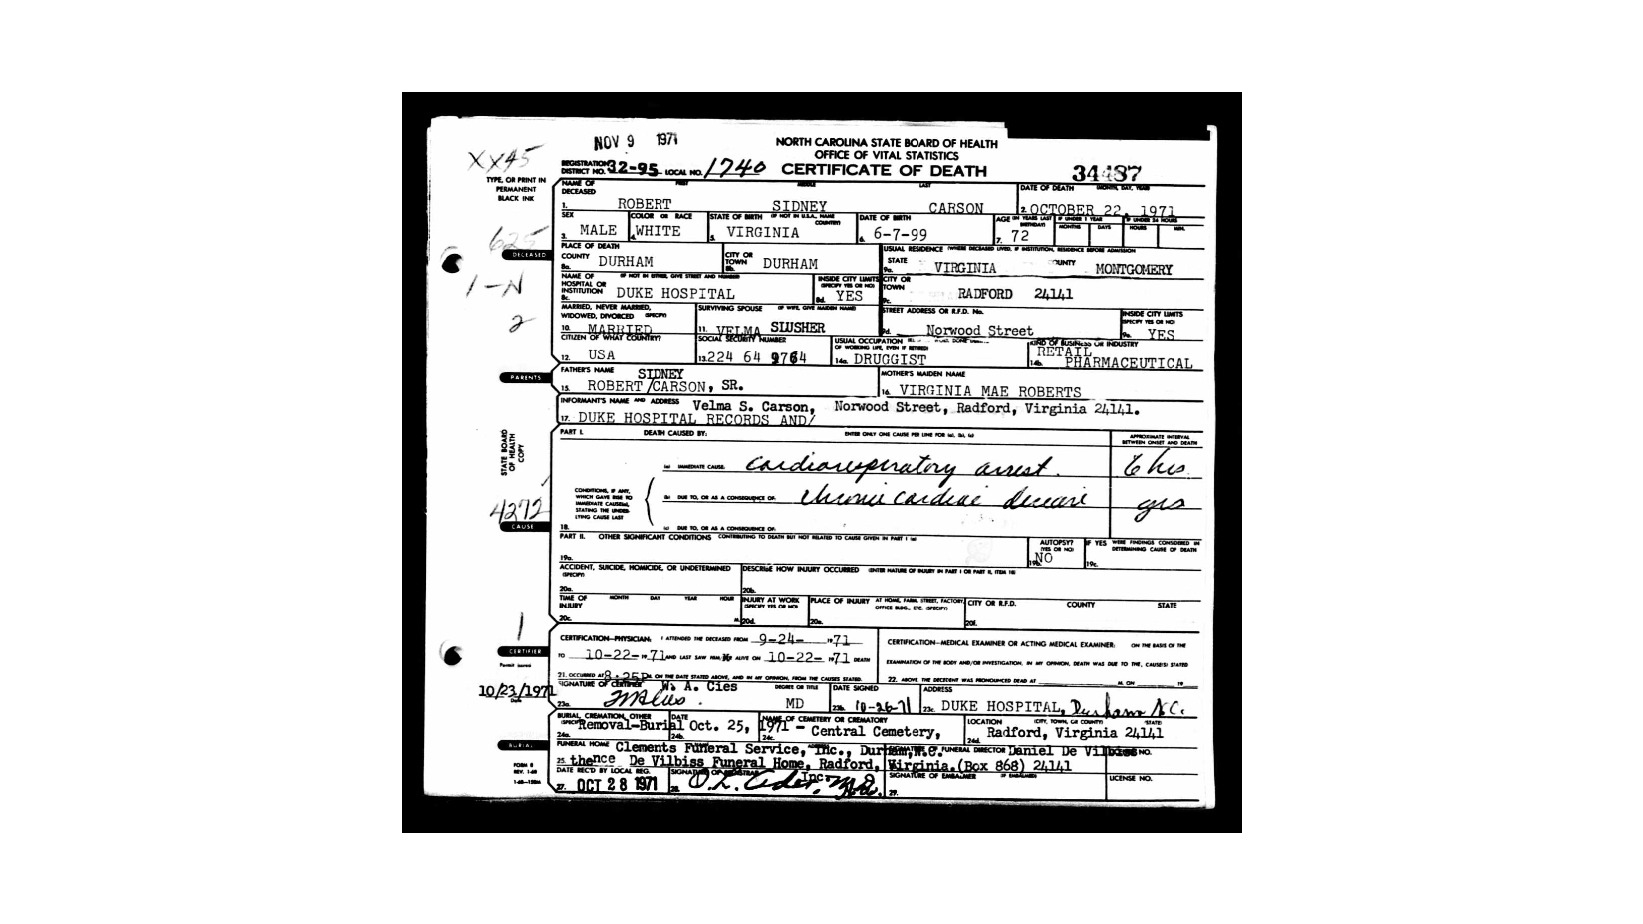 NOV 9 1971
NORTH CAROLINA STATE BOARD OF HEALTH
OFFICE OF VITAL STATISTICS
REGISTRATION DISTRICT NO. 32-95 LOCAL NO. 1740 CERTIFICATE OF DEATH 34487
XX45
TYPE, OR PRINT IN PERMANENT BLACK INK
NAME OF DECEASED FIRST MIDDLE LAST DATE OF DEATH MONTH, DAY, YEAR
1. ROBERT SIDNEY CARSON 2. OCTOBER 22, 1971
SEX COLOR OR RACE STATE OF BIRTH (IF NOT IN U.S.A., NAME COUNTRY) DATE OF BIRTH AGE (IN YEARS LAST BIRTHDAY) IF UNDER 1 YEAR MONTHS DAYS IF UNDER 24 HOURS HOURS MIN.
3. MALE 4. WHITE 5. VIRGINIA 6. 6-7-99 7. 72
625
DECEASED
PLACE OF DEATH USUAL RESIDENCE (WHERE DECEASED LIVED, IF INSTITUTION, RESIDENCE BEFORE ADMISSION)
COUNTY 8a. DURHAM CITY OR TOWN 8b. DURHAM STATE 9a. VIRGINIA COUNTY MONTGOMERY
1-N
NAME OF HOSPITAL OR INSTITUTION (IF NOT IN EITHER, GIVE STREET AND NUMBER) 8c. DUKE HOSPITAL INSIDE CITY LIMITS (SPECIFY YES OR NO) 8d. YES CITY OR TOWN 9c. RADFORD 24141
2
MARRIED, NEVER MARRIED, WIDOWED, DIVORCED (SPECIFY) SURVIVING SPOUSE (IF WIFE, GIVE MAIDEN NAME) STREET ADDRESS OR R.F.D. No. INSIDE CITY LIMITS (SPECIFY YES OR NO)
10. MARRIED 11. VELMA SLUSHER 9d. Norwood Street 9e. YES
CITIZEN OF WHAT COUNTRY? SOCIAL SECURITY NUMBER USUAL OCCUPATION OF WORKING LIFE, EVEN IF RETIRED) KIND OF BUSINESS OR INDUSTRY
12. USA 13. 224 64 9764 14a. DRUGGIST 14b. RETAIL PHARMACEUTICAL
PARENTS
FATHER'S NAME MOTHER'S MAIDEN NAME
SIDNEY
15. ROBERT /CARSON, SR. 16. VIRGINIA MAE ROBERTS
INFORMANT'S NAME AND ADDRESS Velma S. Carson, Norwood Street, Radford, Virginia 24141.
17. DUKE HOSPITAL RECORDS AND/
PART I. DEATH CAUSED BY: ENTER ONLY ONE CAUSE PER LINE FOR (a), (b), (c) APPROXIMATE INTERVAL BETWEEN ONSET AND DEATH
STATE BOARD OF HEALTH COPY
(a) IMMEDIATE CAUSE: cardiorespiratory arrest. 6 hrs.
CONDITIONS, IF ANY, WHICH GAVE RISE TO IMMEDIATE CAUSE(a), STATING THE UNDERLYING CAUSE LAST
(b) DUE TO, OR AS A CONSEQUENCE OF: chronic cardiac disease yrs
4272
CAUSE
18. (c) DUE TO, OR AS A CONSEQUENCE OF:
PART II. OTHER SIGNIFICANT CONDITIONS CONTRIBUTING TO DEATH BUT NOT RELATED TO CAUSE GIVEN IN PART I (a) AUTOPSY? (YES OR NO) IF YES WERE FINDINGS CONSIDERED IN DETERMINING CAUSE OF DEATH
19a. 19b. NO 19c.
ACCIDENT, SUICIDE, HOMICIDE, OR UNDETERMINED (SPECIFY) DESCRIBE HOW INJURY OCCURRED (ENTER NATURE OF INJURY IN PART I OR PART II, ITEM 18)
20a. 20b.
TIME OF INJURY MONTH DAY YEAR HOUR INJURY AT WORK (SPECIFY YES OR NO) PLACE OF INJURY AT HOME, FARM, STREET, FACTORY, OFFICE BLDG., ETC. (SPECIFY) CITY OR R.F.D. COUNTY STATE
20c. M. 20d. 20e. 20f.
1
CERTIFIER
CERTIFICATION—PHYSICIAN: I ATTENDED THE DECEASED FROM 9-24- 1971 CERTIFICATION—MEDICAL EXAMINER OR ACTING MEDICAL EXAMINER: ON THE BASIS OF THE
TO 10-22-1971 AND LAST SAW HIM ALIVE ON 10-22- 1971 DEATH EXAMINATION OF THE BODY AND/OR INVESTIGATION, IN MY OPINION, DEATH WAS DUE TO THE, CAUSE(S) STATED
Permit Issued
21. OCCURRED AT 8:25P M. ON THE DATE STATED ABOVE, AND IN MY OPINION, FROM THE CAUSES STATED. 22. ABOVE. THE DECEDENT WAS PRONOUNCED DEAD AT M. ON 19
10/23/1971
Date
SIGNATURE OF CERTIFIER W. A. Cies DEGREE OR TITLE DATE SIGNED ADDRESS
23a. MD 23b. 10-26-71 23c. DUKE HOSPITAL, Durham N.C.
BURIAL, CREMATION, OTHER (SPECIFY) DATE NAME OF CEMETERY OR CREMATORY LOCATION (CITY, TOWN, OR COUNTY) (STATE)
24a. Removal-Burial 24b. Oct. 25, 1971 - 24c. Central Cemetery, 24d. Radford, Virginia 24141
BURIAL
FUNERAL HOME Clements Funeral Service, Inc., Durham, N.C. SIGNATURE OF FUNERAL DIRECTOR Daniel De Vilbiss NO.
25. thence De Vilbiss Funeral Home, Radford, Virginia. (Box 868) 24141
FORM 8
REV. 1-68
DATE REC'D BY LOCAL REG. SIGNATURE OF REGISTRAR Inc. SIGNATURE OF EMBALMER (IF EMBALMED) LICENSE NO.
27. OCT 28 1971 28. 29.